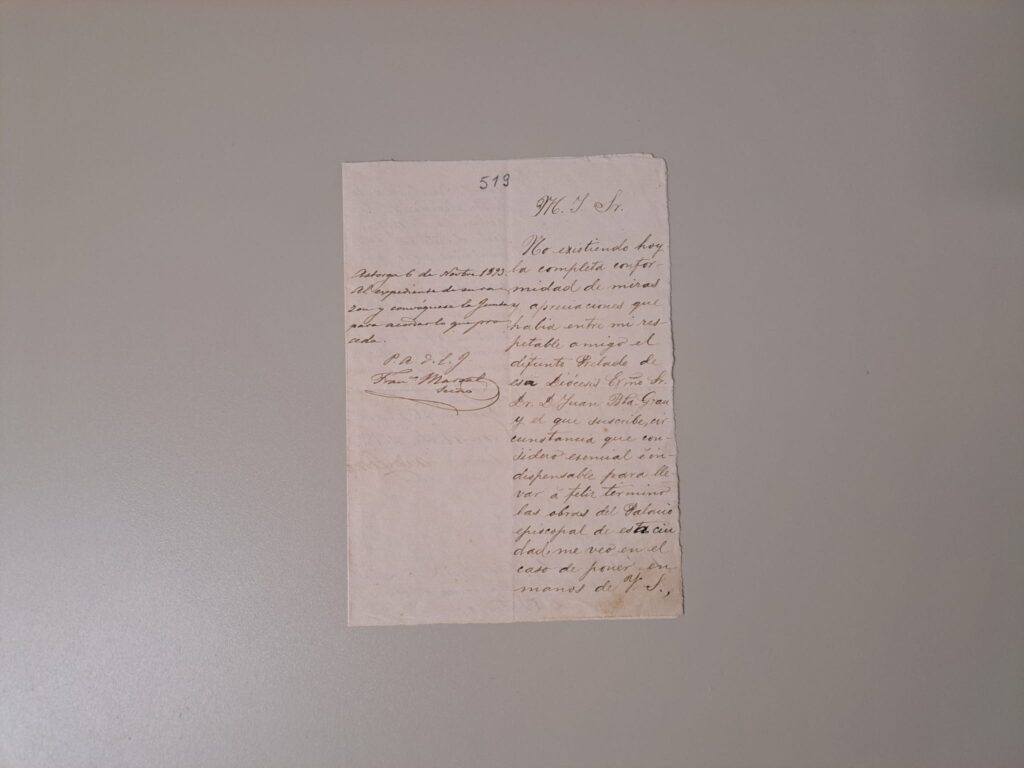 519
M. I. Sr.
No existiendo hoy
la completa confor
midad de miras
y apreciaciones que
habia entre mi res
petable amigo el
difunto Prelado de
esa Diócesis Exmo Sr.
Dr. D. Juan Bta Grau
y el que suscribe, cir
cunstancia que con-
sidero esencial é in-
dispensable para lle
var á feliz termino
las obras del Palacio
episcopal de esta ciu
dad, me veo en el
caso de poner en
manos de V. S.,
Astorga 6 de Novbre 1893
Al expediente de su ra-
zon y convóquese la Junta
para acordar lo que pro-
ceda.
P. A. d. l. J.
Franco Marsal
Secrio